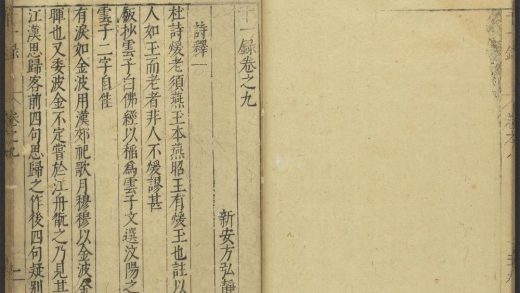 千一錄卷之九
新安方弘靜
詩釋一
杜詩煖老須燕玉本燕昭王有煖玉也註以
人如玉而老者非人不煖謬甚
飯抄雲子白佛經以稻為雲子文選汶陽之
雲子二字自佳
有淚如金波用漢郊祀歌月穆穆以金波金
暉也又委波金不定嘗於江舟翫之乃見其
江漢思歸客前四句思歸之作後四句疑別
千一錄
卷之九
一